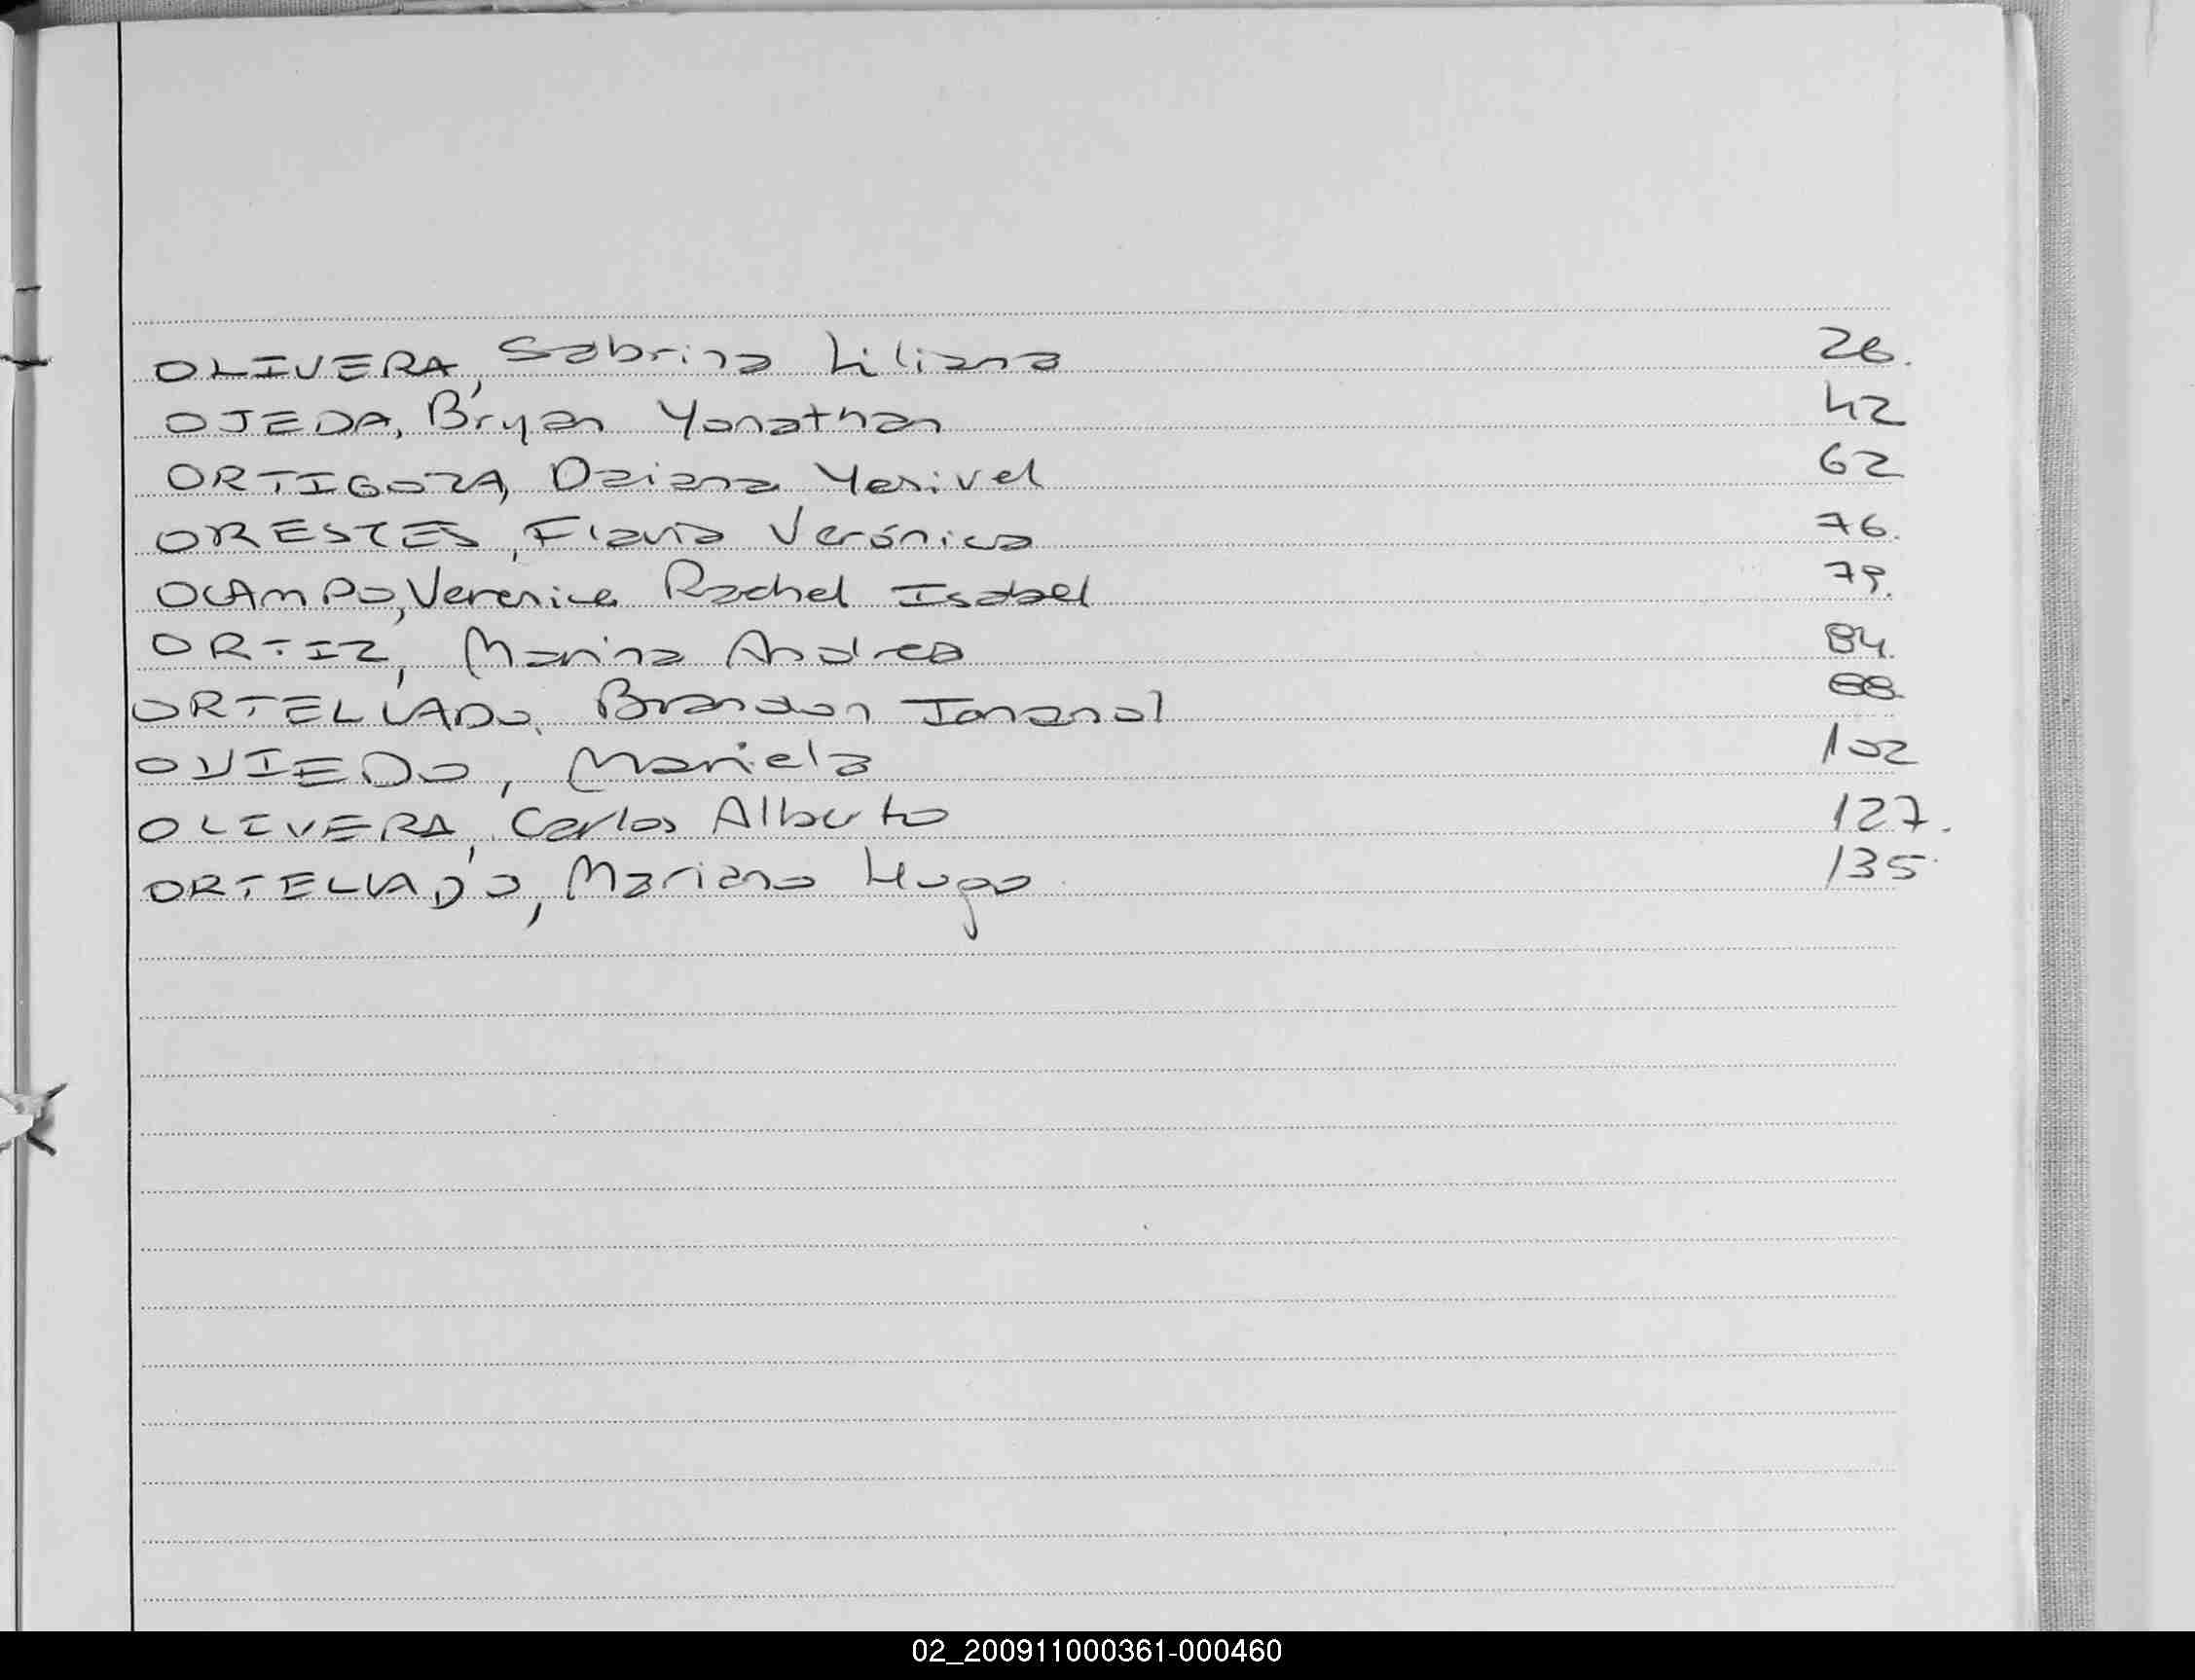 OLIVERA, Sabrina Liliana 26.
OJEDA, Bryan Yonathan 42
ORTIGOZA, Daiana Yesivel 62
ORESTES, Flavia Verónica 76.
OCAMPO, Verenice Rachel Isabel 79.
ORTIZ, Marina Andrea 84.
ORTELLADO, Brandon 88.
OVIEDO, Mariela 102
OLIVERA, Carlos Alberto 127.
ORTELLADO, Mariano Hugo 135
02_200911000361-000460